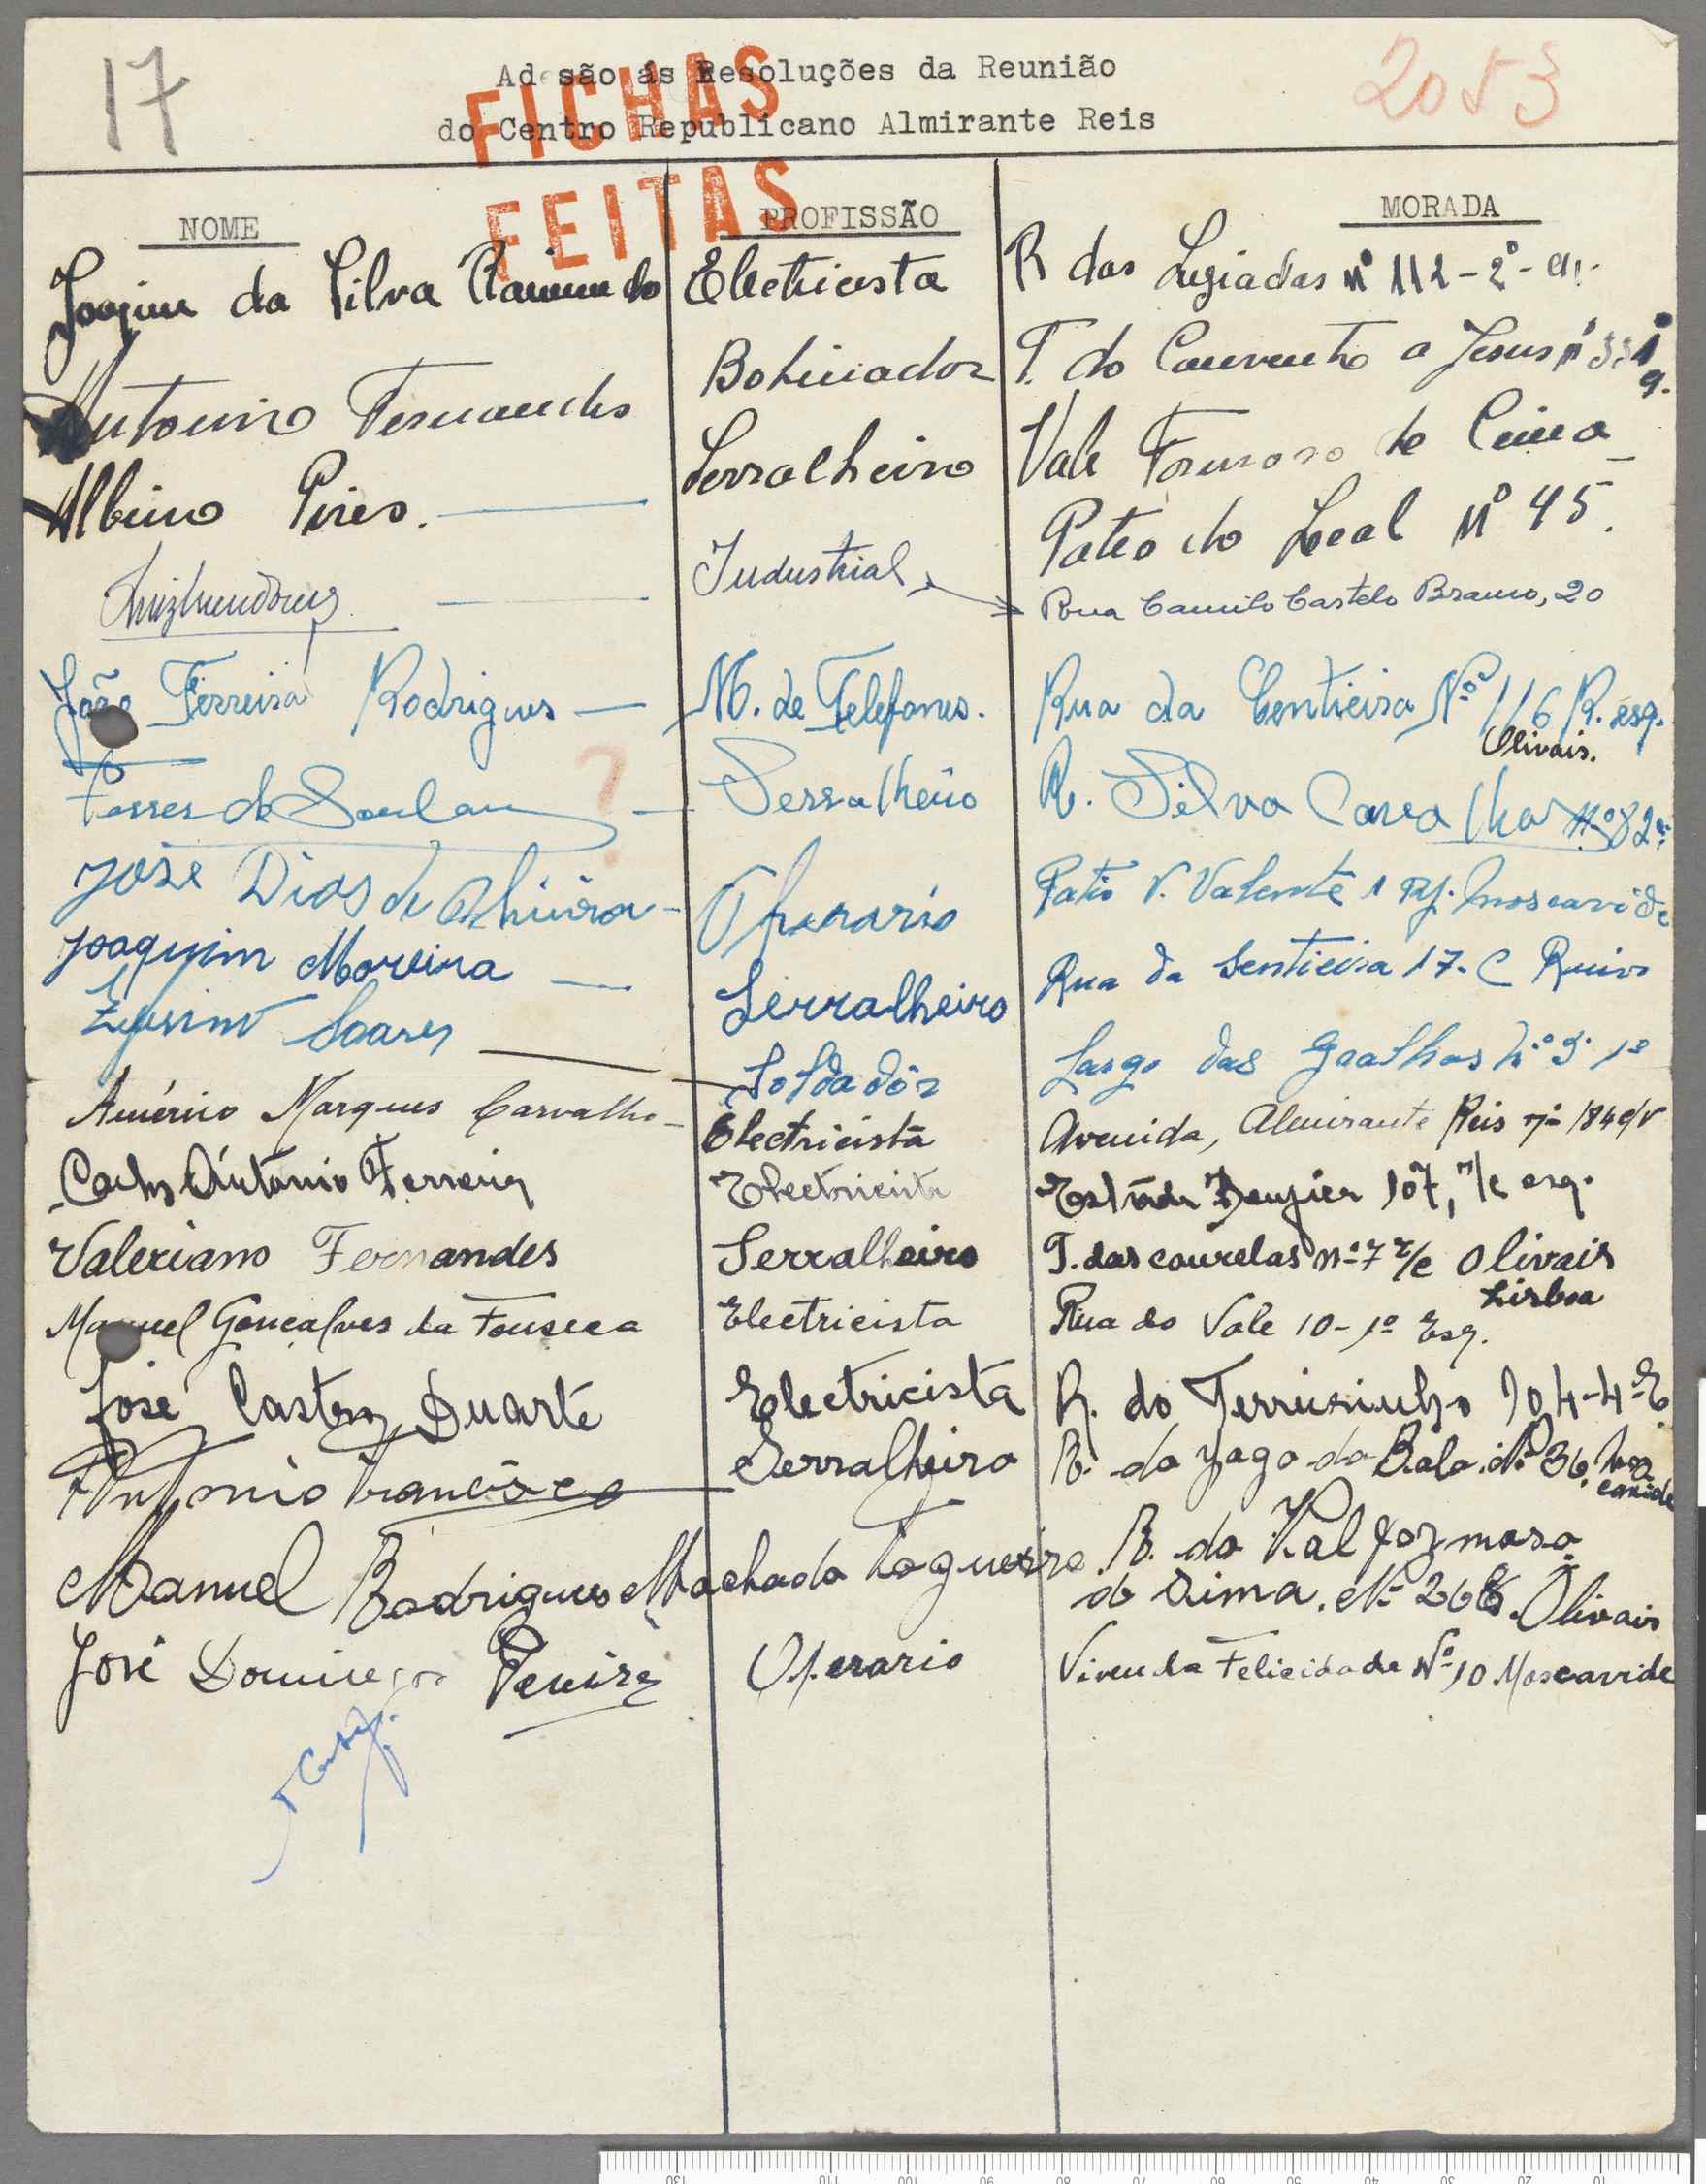 17
Adesão ás Resoluções da Reunião
2053
do Centro Republicano Almirante Reis
FICHAS
FEITAS
NOME PROFISSÃO MORADA
Joaquim da Silva Raimundo Electricista R das Lusiadas nº 112-2º-
Antonio Fernandes Bobinador T. do Convento a Jesus nº
Albino Pires. Serralheiro Vale Formoso de Cima
Pateo do Leal Nº 45.
Industrial, Rua Camilo Castelo Branco, 20
João Ferreira Rodrigues M. de Telefones. Rua da Centieira Nº 116 R. esq.
Olivais.
Serralheiro R. Silva Carvalho nº 82
?
José Dias de Oliveira Operario Patio V. Valente 1 Moscavide
Joaquim Moreira Serralheiro Rua da Sentieira 17. C Ruivo
Soares Soldadôr Largo das nº 1º
Américo Marques Carvalho Electricista Avenida, Almirante Reis nº 184 c/v
Carlos António Ferreira Electricista Estrada 107, r/c esq.
Valeriano Fernandes Serralheiro T. das courelas nº 7 r/c Olivais
Lisboa
Manuel Gonçalves da Fonseca Electricista Rua do Vale 10-1º Esq.
José Castro Duarte Electricista R. do Terreirinho 104-4º E
António Francisco Serralheiro R. do da Nº 36. Moscavide
Manuel Rodrigues Machado Nogueira R. do Val formoso
de Sima. Nº 266. Olivais
José Domingos Pereira Operario Vivenda Felicidade Nº 10 Moscavide